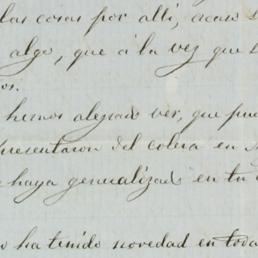 las cosas por alli, acaso
algo, que á la vez que
os.
hemos alegrado ver, que pue
presentaron del colera en
haya generalizado en tu
ha tenido novedad en toda